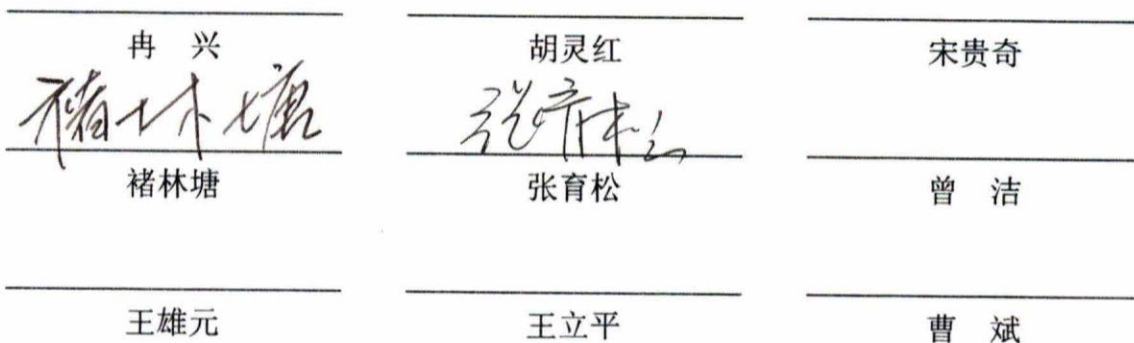 冉 兴 胡灵红 宋贵奇
褚林塘 张育松
褚林塘 张育松 曾 洁
王雄元 王立平 曹 斌